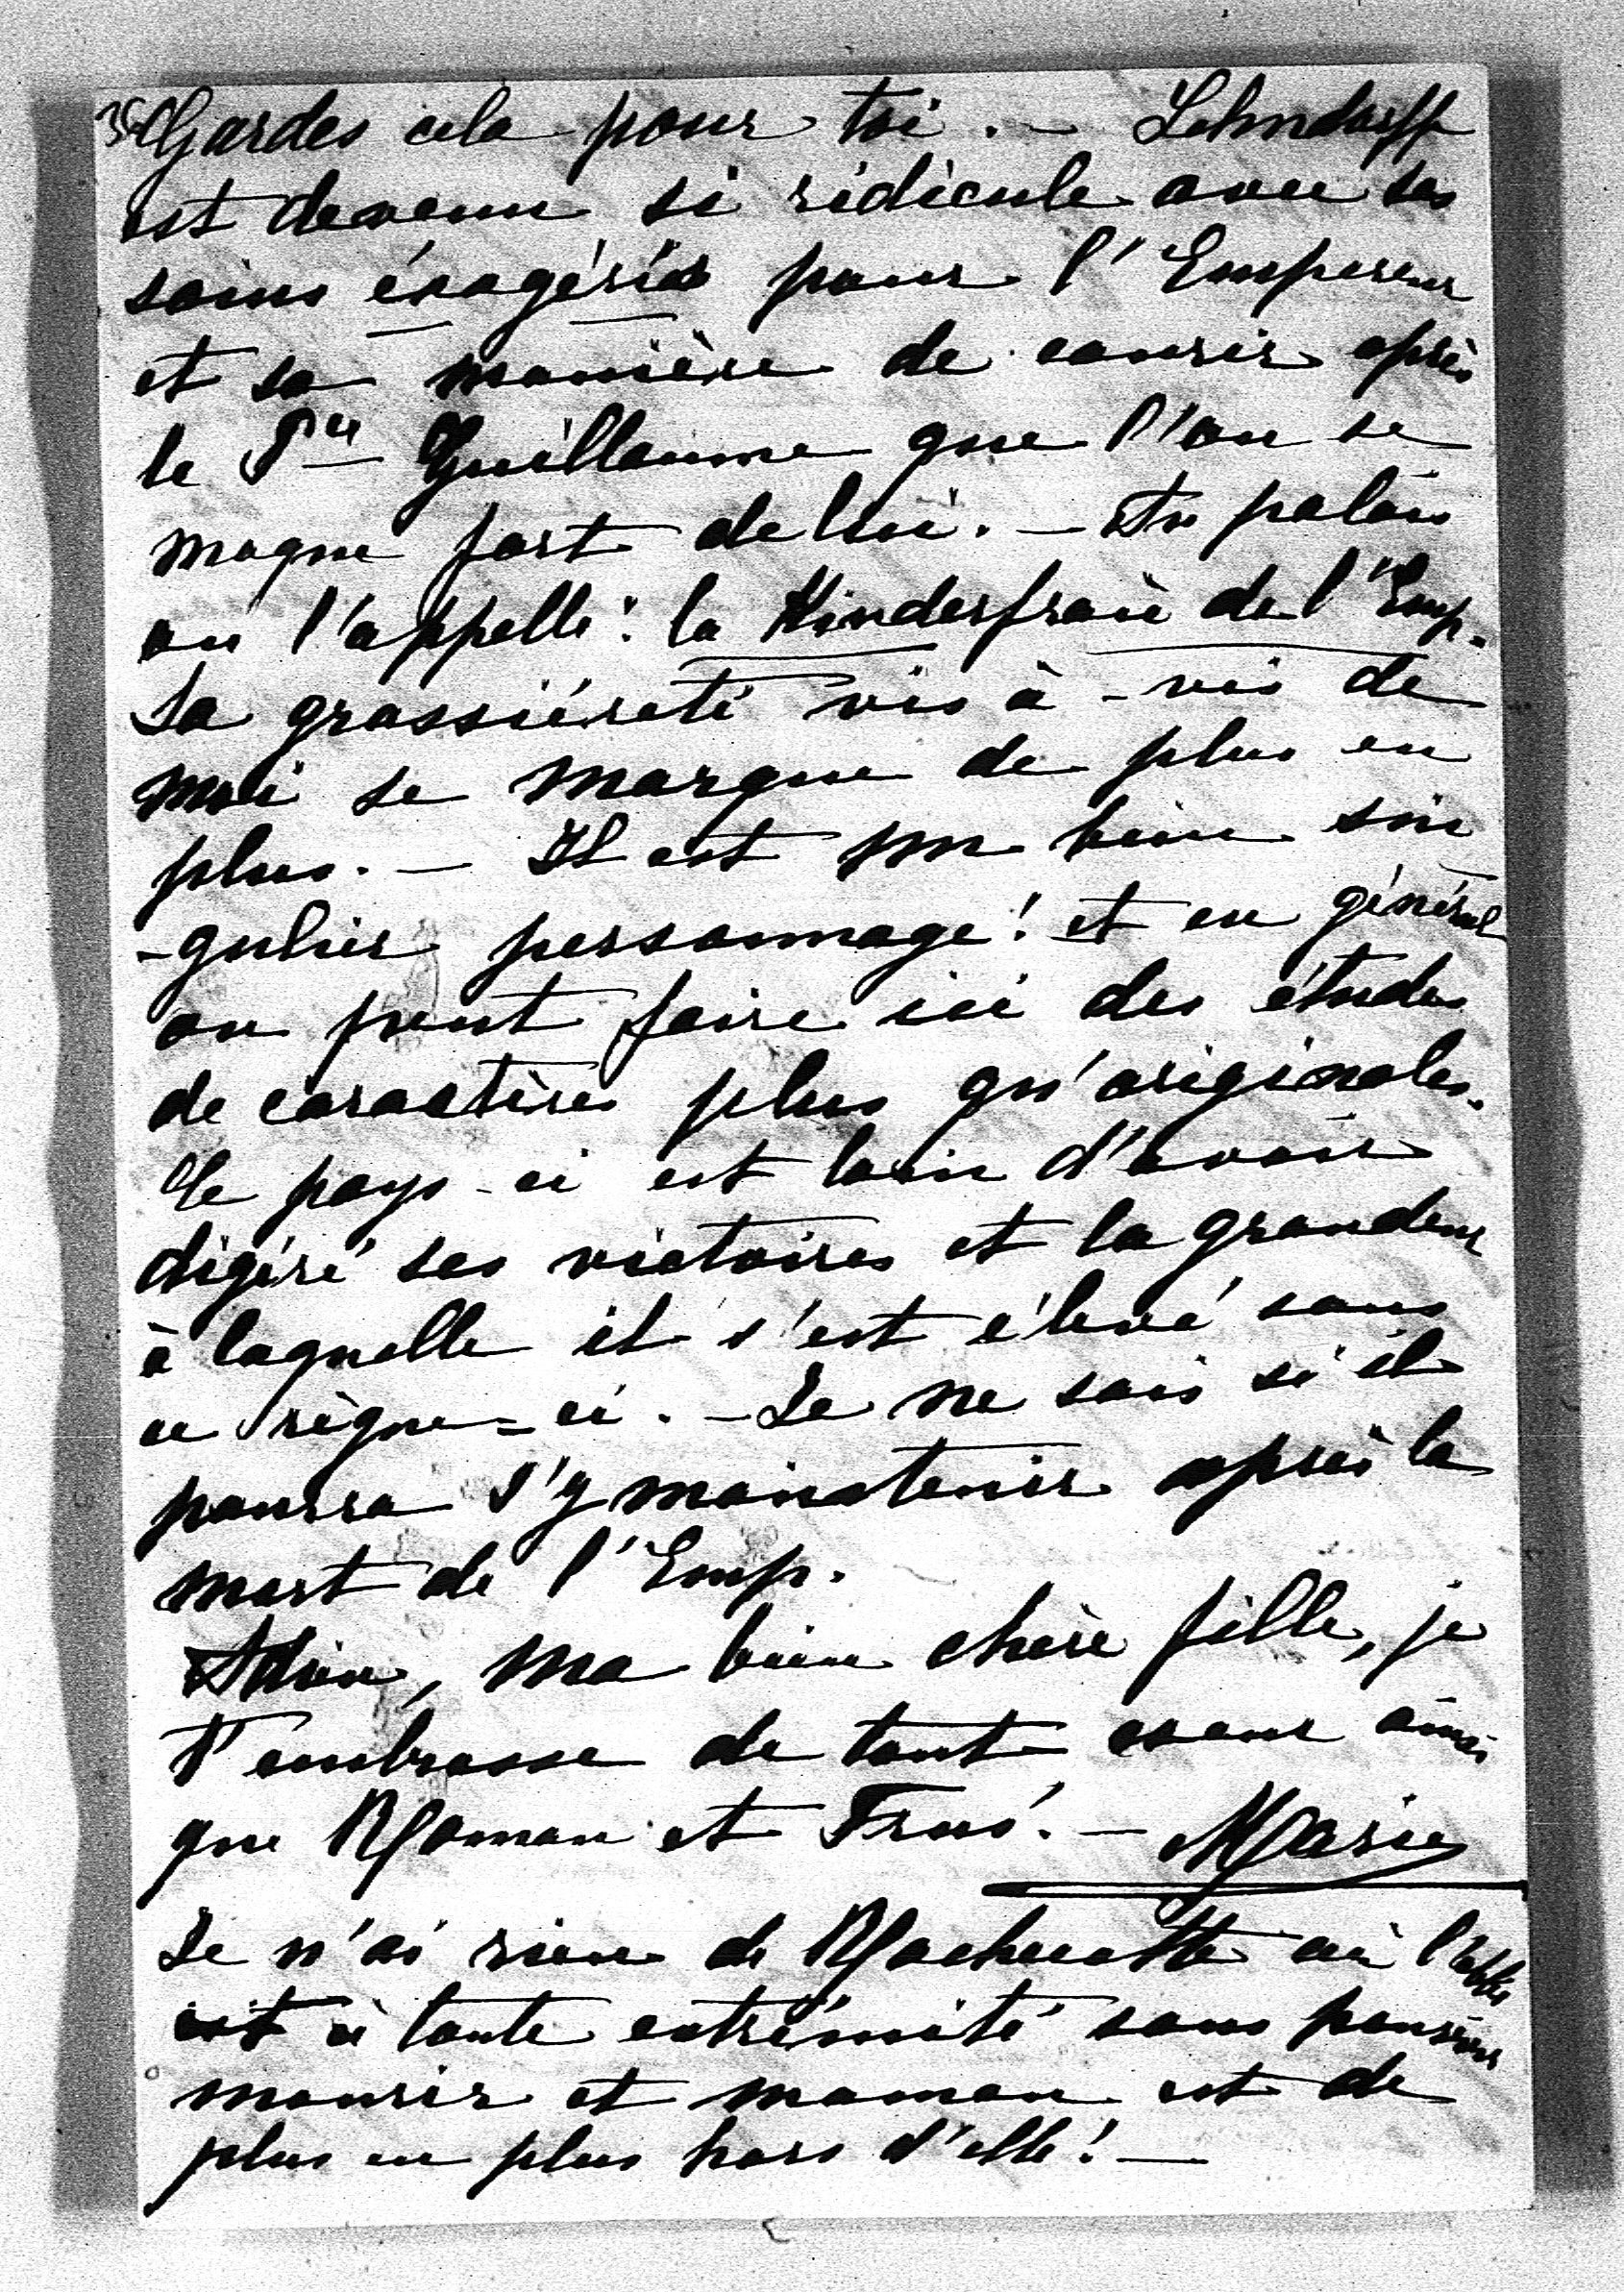 Gardes cela pour toi. — Lehndorff
est devenu si ridicule avec ses
soins éxagérés pour l'Empereur
et sa manière de courir après
le Pce Guillaume que l'on se
moque fort de lui. — Au palais
on l'appelle: la Kinderfrau de l'Emp.
Sa grossiéreté vis à-vis de
moi se marque de plus en
plus. — Il est un bien sin
-gulier personnage! et en général
on peut faire ici des études
de caractères plus qu'originales.
Ce pays-ci est loin d'avoir
digéré ses victoires et la grandeur
à laquelle il s'est élevé sous
ce règne-ci. — Je ne sais si il
pourra s'y maintenir après la
mort de l'Emp.
Adieu, ma bien chère fille, je
t'embrasse de tout cœur ainsi
que Roman et — Marie
Je n'ai rien de Rochecotte où l'abbé
est à toute extrémité sans pouvoir
mourir et maman est de
plus en plus hors d'elle! —